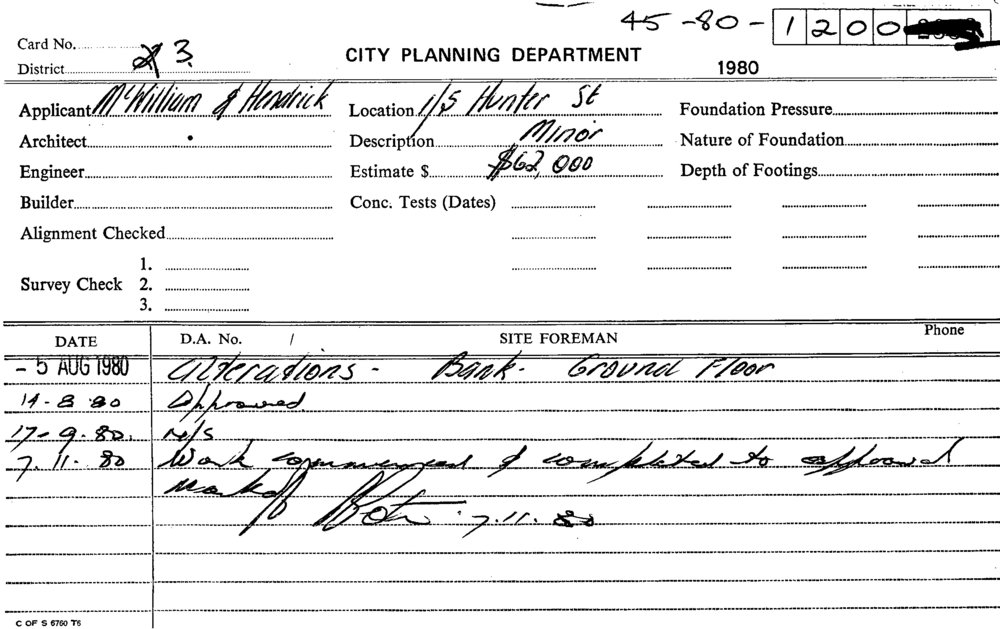 45-80-1200
Card No. 3.
District
CITY PLANNING DEPARTMENT
1980
Applicant McWilliam & Hendrick
Location 1/5 Hunter St
Foundation Pressure
Architect
Description Minor
Nature of Foundation
Engineer
Estimate $ $62,000
Depth of Footings
Builder
Conc. Tests (Dates)
Alignment Checked
1.
Survey Check 2.
3.
DATE D.A. No. / SITE FOREMAN Phone
- 5 AUG 1980 Alterations - Bank - Ground Floor
14-8-80 Approved
17-9-80. N/S
7.11.80 Work commenced & completed to approval
7.11.80
C OF S 6760 T6